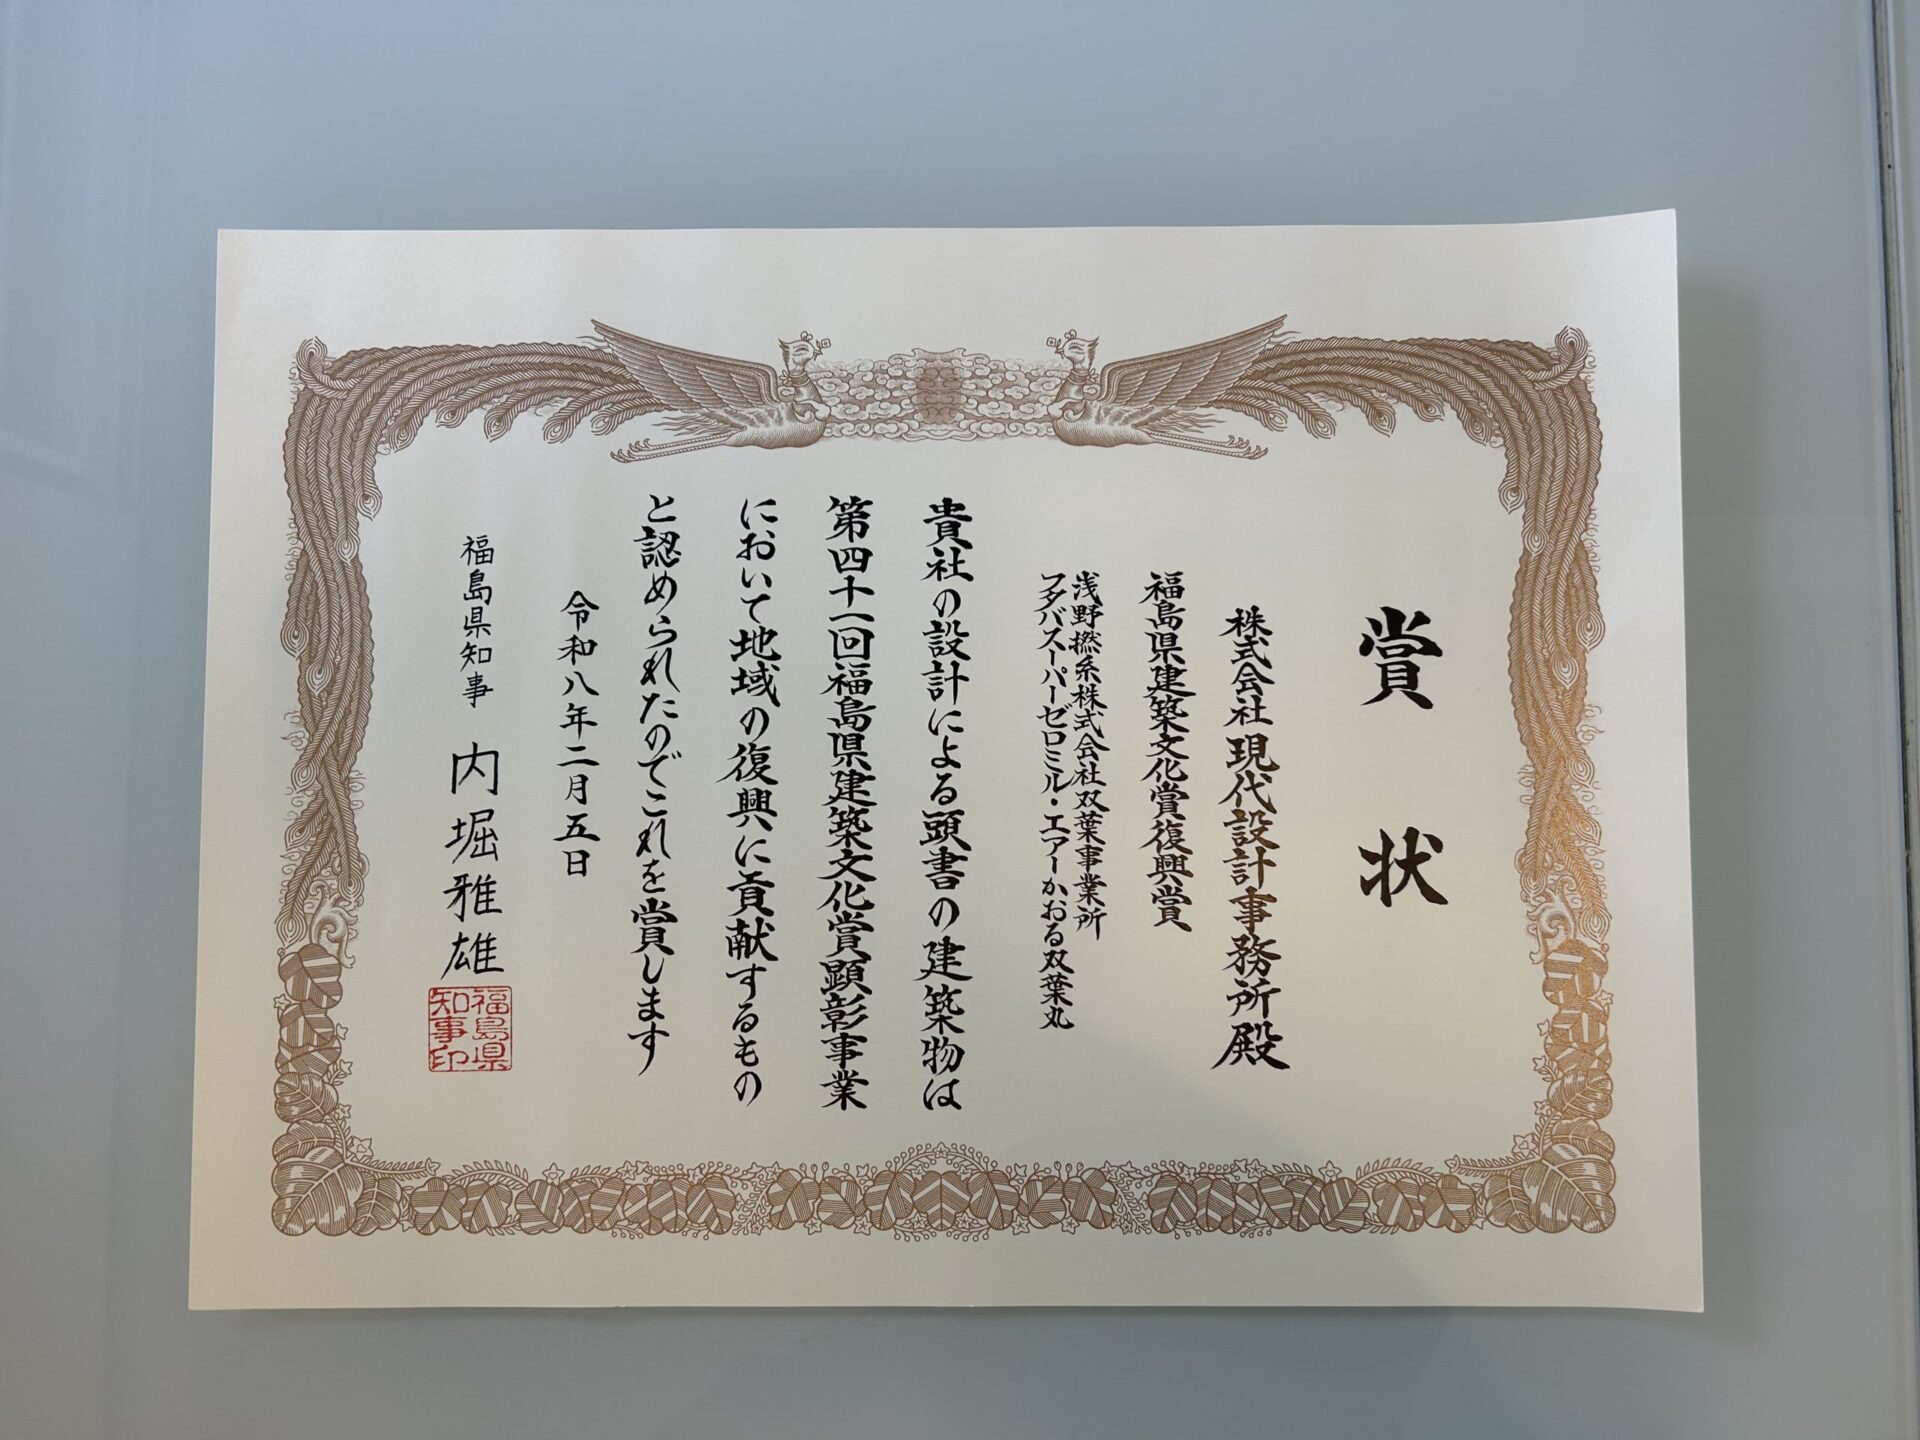 賞状
株式会社現代設計事務所殿
福島県建築文化賞復興賞
浅野撚糸株式会社双葉事業所
フタバスーパーゼロミル・エアーかおる双葉丸
貴社の設計による頭書の建築物は
第四十一回福島県建築文化賞顕彰事業
において地域の復興に貢献するもの
と認められたのでこれを賞します
令和八年二月五日
福島県知事 内堀雅雄
福島県
知事印